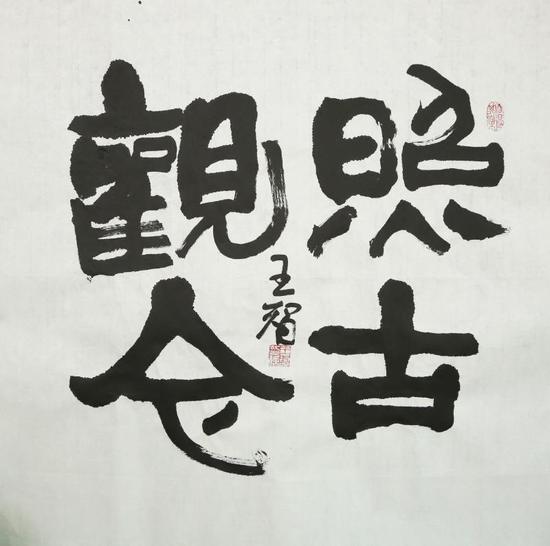 照古
觀今
王